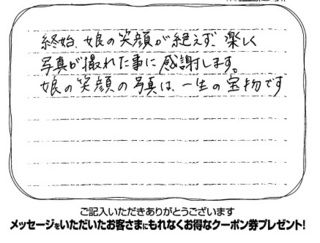 終始、娘の笑顔が絶えず、楽しく
写真が撮れた事に感謝します。
娘の笑顔の写真は、一生の宝物です
ご記入いただきありがとうございます
メッセージをいただいたお客さまにもれなくお得なクーポン券プレゼント!